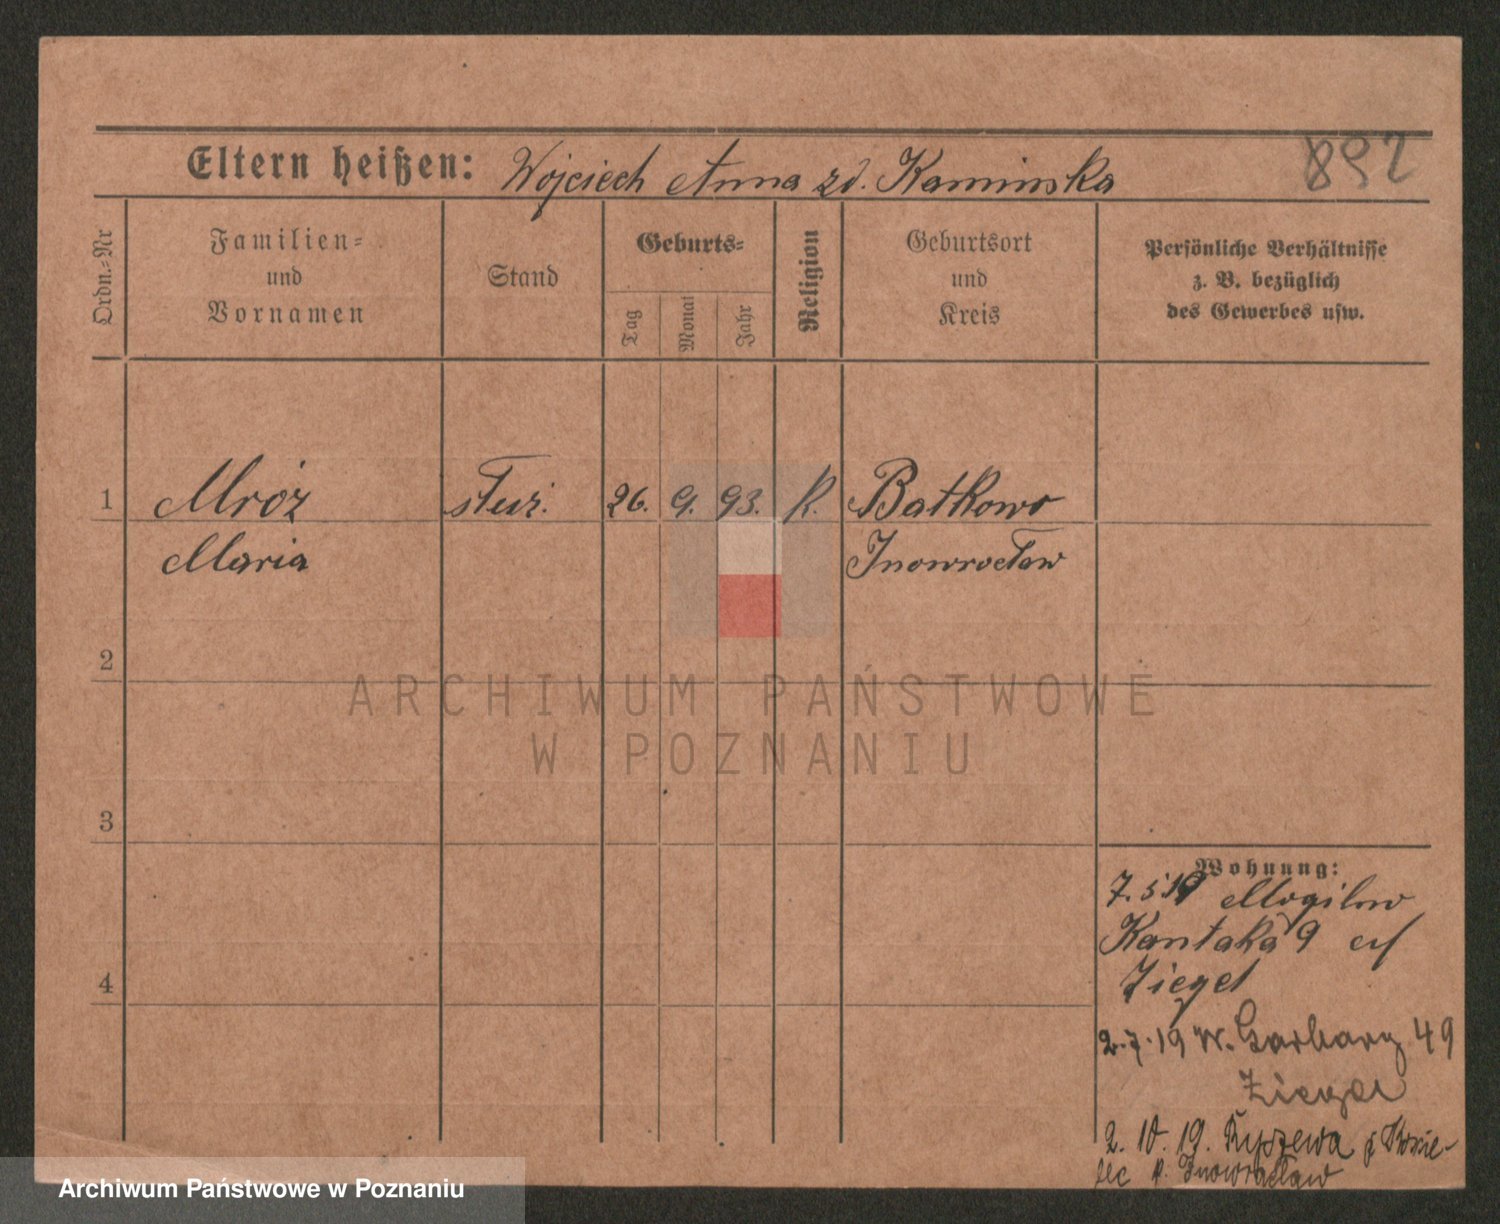 Eltern heißen: Wojciech Anna zd. Kaminska
892
Ordn.-Nr
Familien-
und
Vornamen
Stand
Geburts-
Tag
Monat
Jahr
Religion
Geburtsort
und
Kreis
Persönliche Verhältnisse
z. B. bezüglich
des Gewerbes usw.
1 Mroz służ. 26. 9. 93. K. Batkowo
Maria Inowrocław
2
ARCHIWUM PAŃSTWOWE
W POZNANIU
3
Wohnung:
7. 5 19 Mogilno
Kantaka 9
Ziegel
4
2. 7. 19 W. Garbary 49
Ziegel
2. 10. 19.
Inowracław
Archiwum Państwowe w Poznaniu